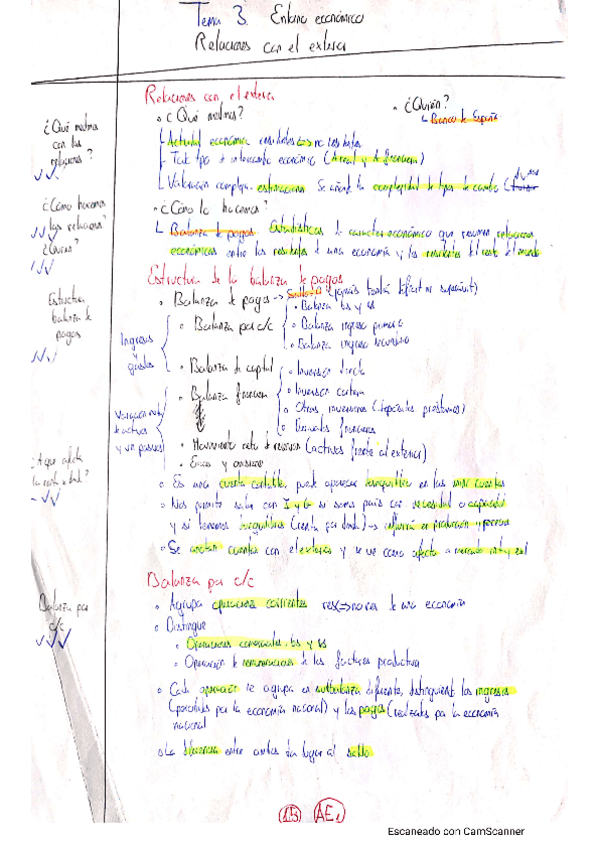 Tema 3. Entorno económico
Relaciones con el exterior
Relaciones con el exterior
¿Qué medimos?
¿Quién?
Banco de España
¿Qué medimos
con las
relaciones?
Actividad económica residentes no residentes
Todo tipo de intercambio económico (real y financiera)
Valoración compleja, estimaciones. Se añade la complejidad de tipo de cambio
¿Cómo hacemos
las relaciones?
¿Quién?
¿Cómo lo hacemos?
Balanza de pagos Estadísticas de carácter económico que resumen relaciones
económicas entre los residentes de una economía y los residentes del resto del mundo
Estructura de la balanza de pagos
Estructura
balanza de
pagos
Balanza de pagos
Balanza bs y ss
Balanza por c/c
Balanza ingreso primario
Balanza ingreso secundario
Ingresos
y
gastos
Balanza de capital
Inversión directa
Balanza financiera
Inversión cartera
Otras inversiones (depósitos, préstamos)
Derivados financieros
Variación neta
de activos
y var pasivos
Movimiento neto de reservas (activos frente al exterior)
Errores y omisiones
Es una cuenta contable, puede aparecer desequilibrio en las
Nos permite saber con I y G si somos país con necesidad o capacidad
y si tenemos desequilibrios
Se anotan cuentas con el exterior y se ve como afecta a mercado int y ext
Balanza por c/c
Balanza por
c/c
Agrupa operaciones corrientes res no res de una economía
Distingue
Operaciones comerciales, bs y ss
Operación de remuneración de los factores productivos
Cada operación se agrupa en subbalanza diferente, distinguiendo los ingresos
(percibidos por la economía nacional) y los pagos (realizados por la economía
nacional
La diferencia entre ambos da lugar al saldo
AE1
Escaneado con CamScanner